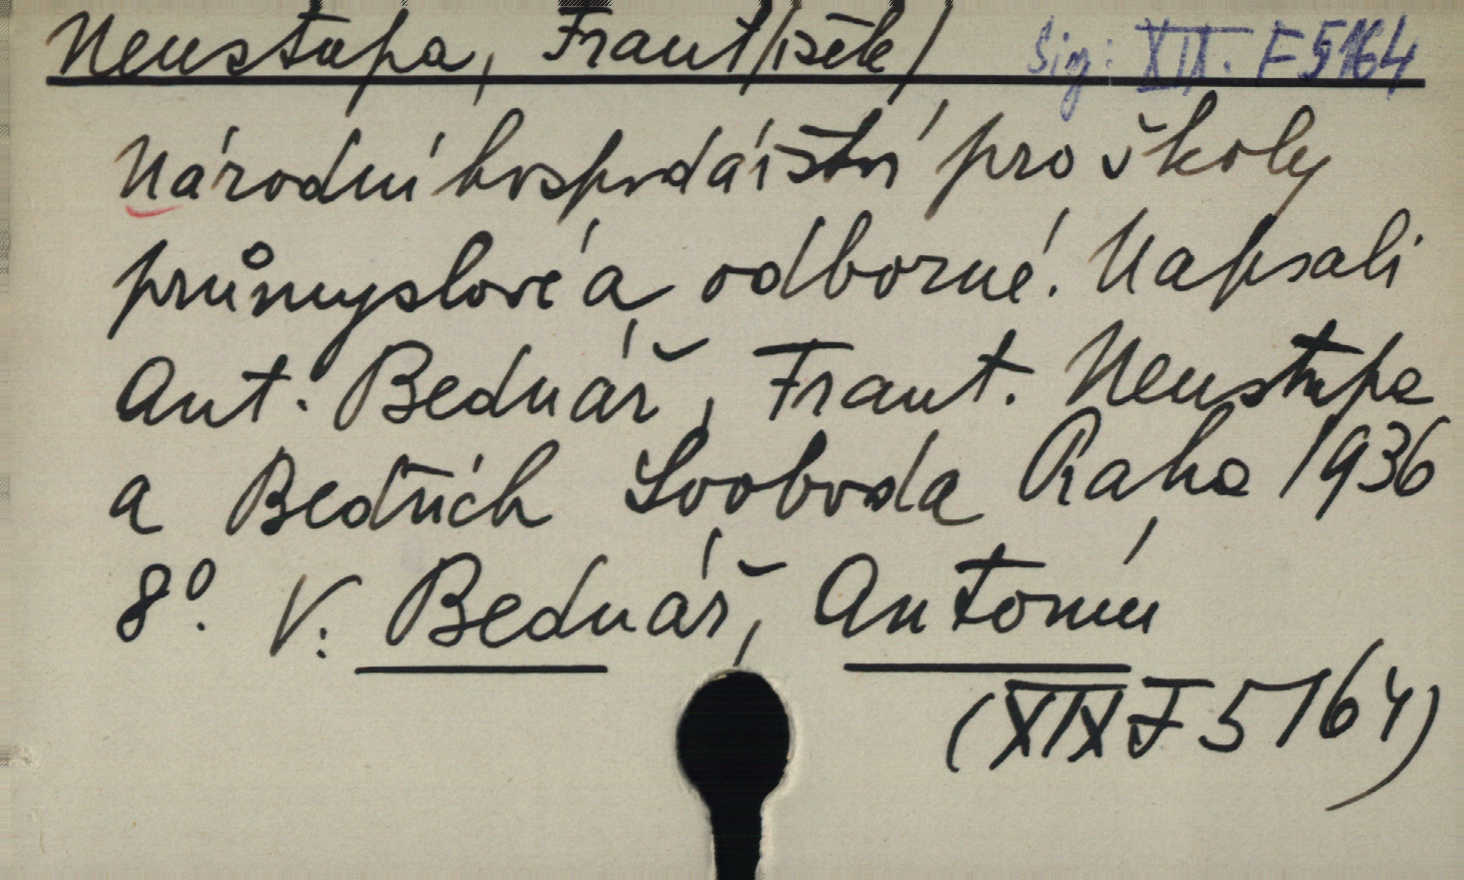 Neustupa, Frant/išek/ Sig: XIX. F 5164
Národní hospodářství pro školy
průmyslové a odborné. Napsali
Ant. Bednář, Frant. Neustupa
a Bedřich Svoboda Praha 1936
8º. V: Bednář, Antonín
(XIX F 5164)